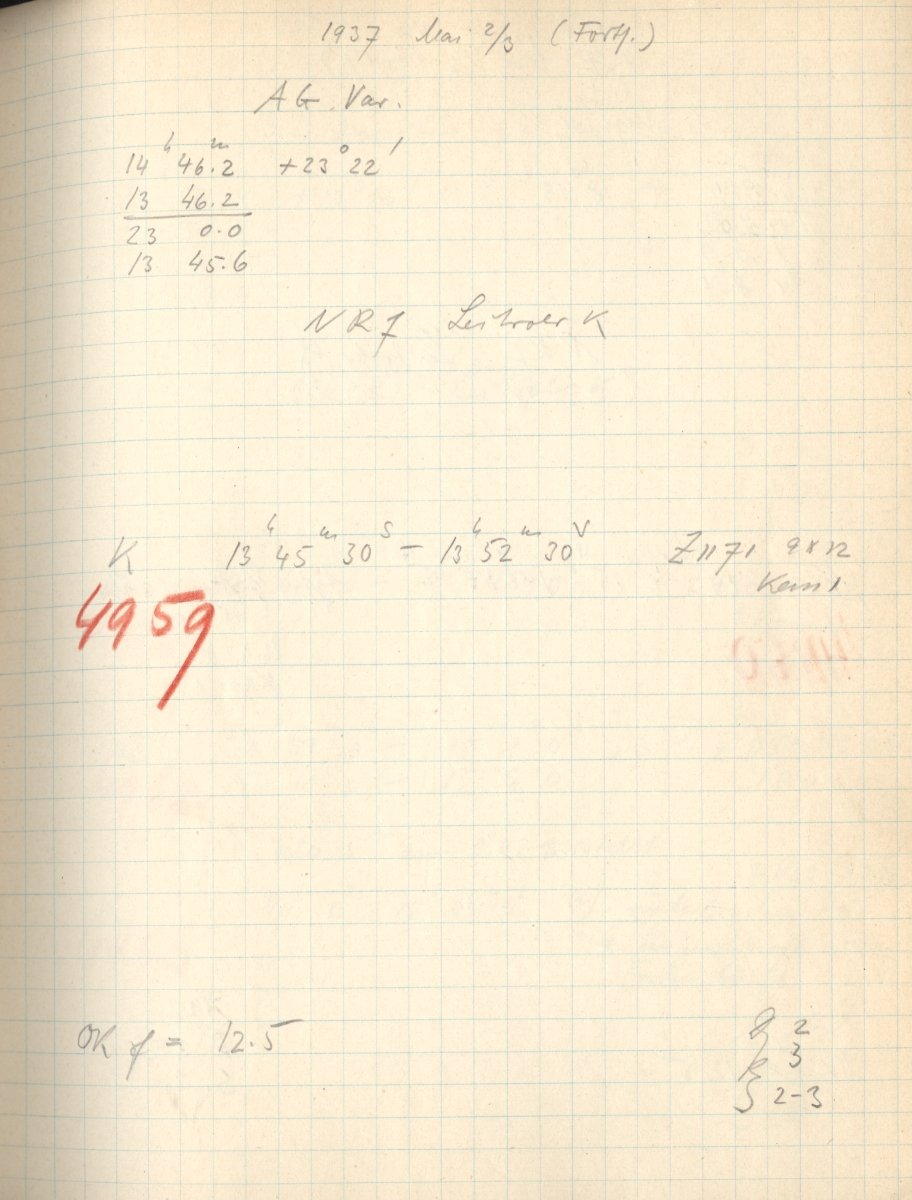 1937 Mai 2/3 (Forts.)
AG. Var.
14ʰ 46.2ᵐ +23° 22'
13 46.2
23 0.0
13 45.6
NR 7 Leitrohr K
K 13ʰ 45ᵐ 30ˢ – 13ʰ 52ᵐ 30ˢ Z 1171 9x12
4959
OK f = 12.5
2
3
2-3